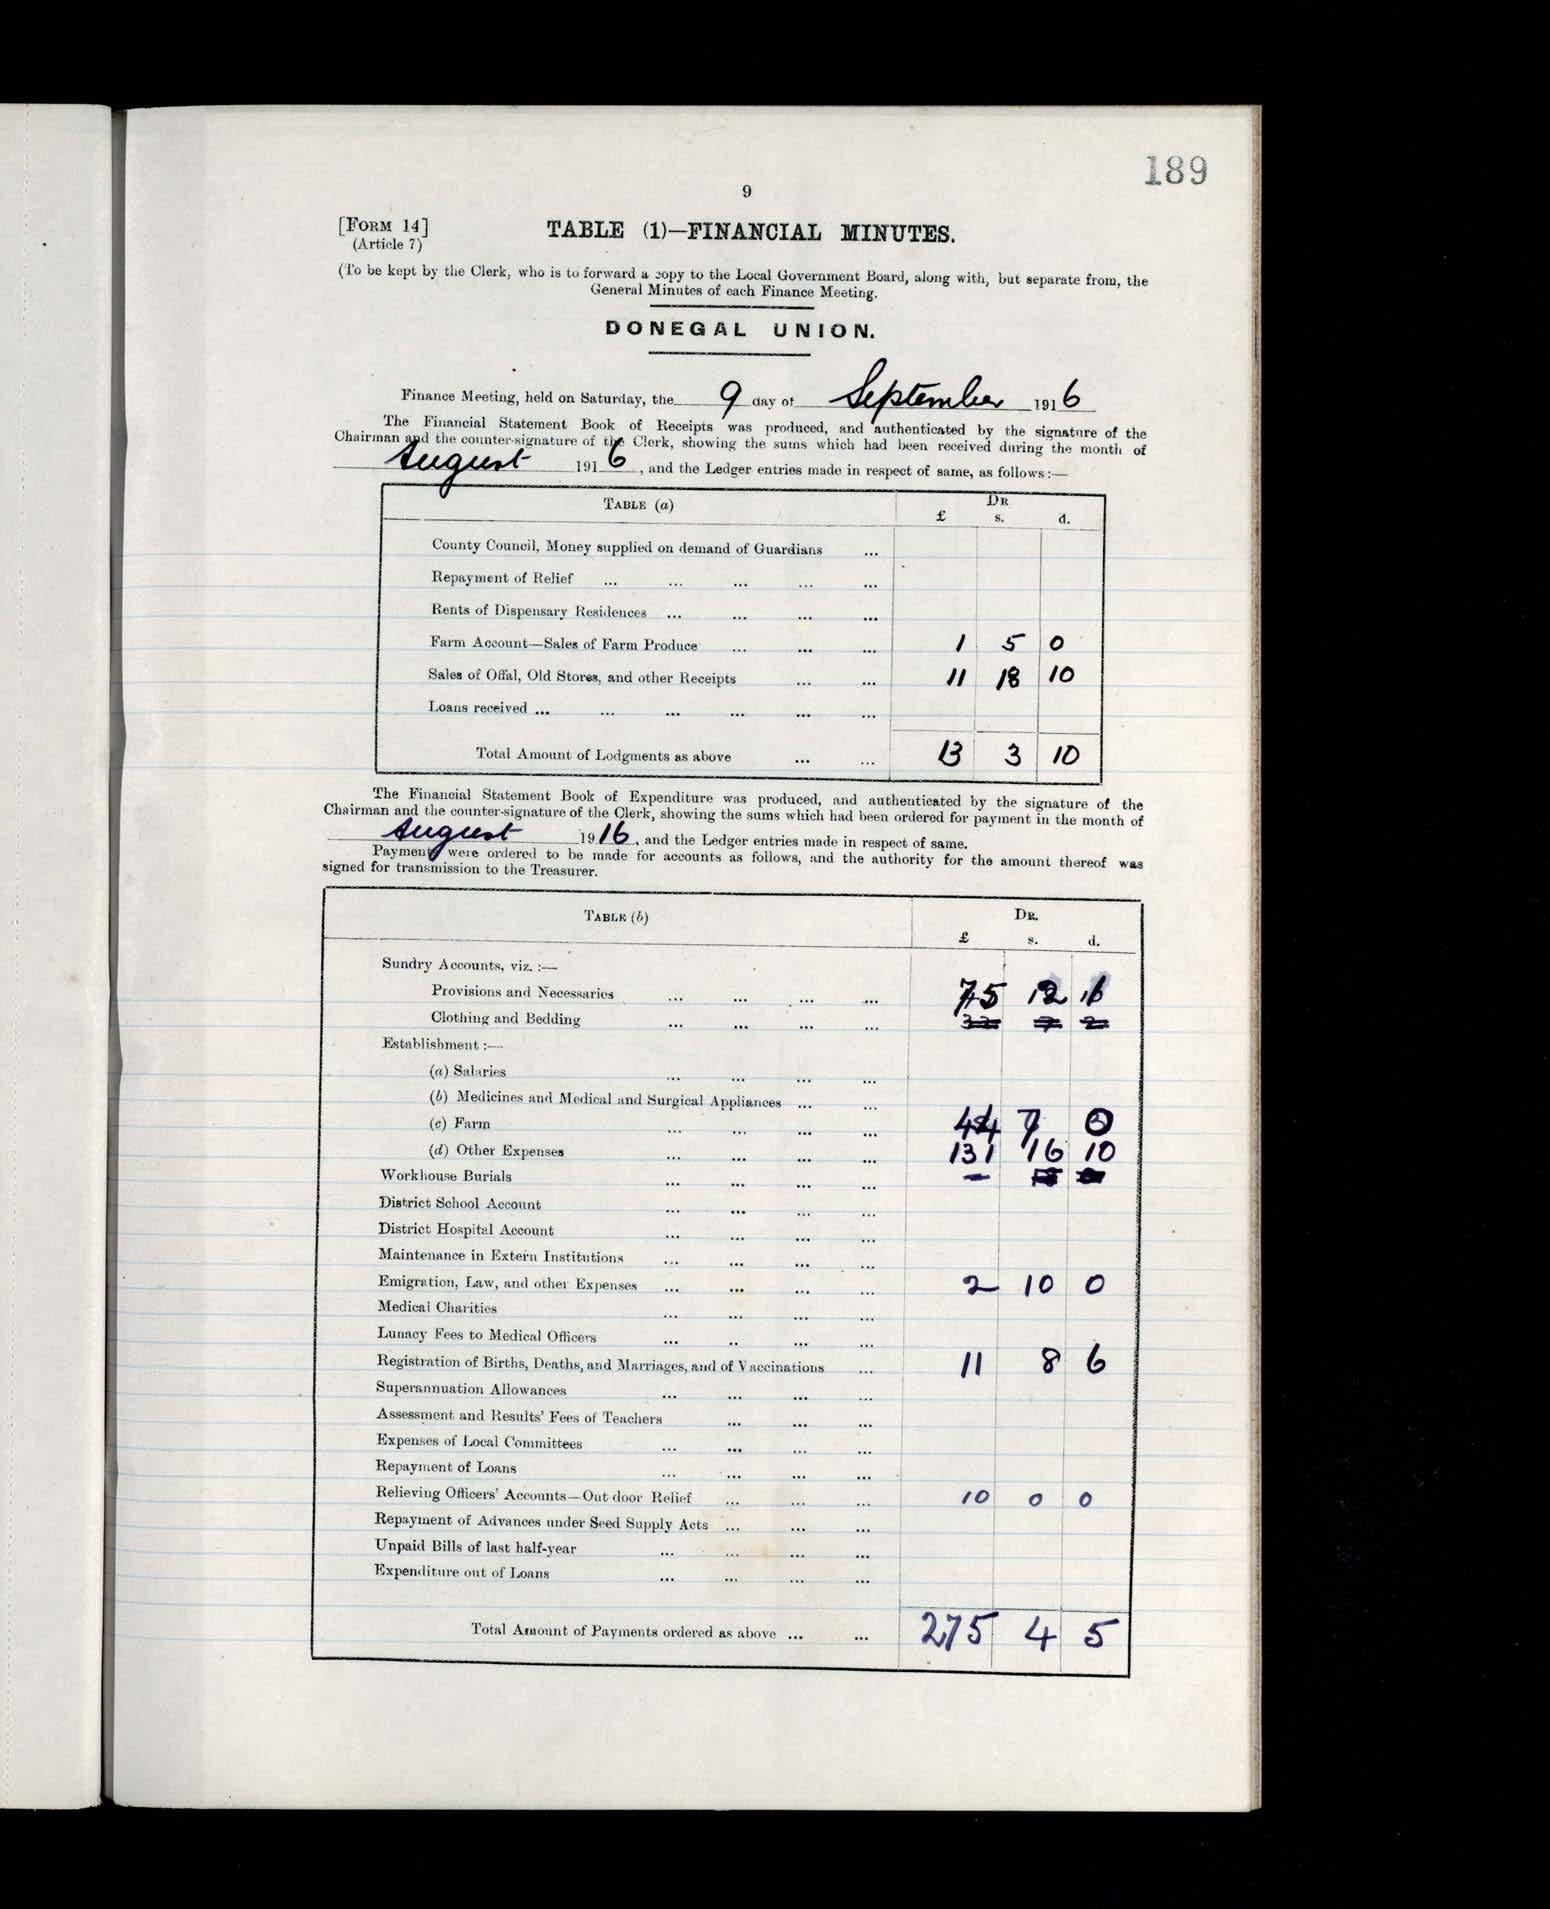 189
9
[FORM 14]
(Article 7)
TABLE (1)—FINANCIAL MINUTES.
(To be kept by the Clerk, who is to forward a copy to the Local Government Board, along with, but separate from, the
General Minutes of each Finance Meeting.
DONEGAL UNION.
Finance Meeting, held on Saturday, the 9 day of September 1916
The Financial Statement Book of Receipts was produced, and authenticated by the signature of the
Chairman and the counter-signature of the Clerk, showing the sums which had been received during the month of
August 1916, and the Ledger entries made in respect of same, as follows:—
TABLE (a) DR
£ s. d.
County Council, Money supplied on demand of Guardians ...
Repayment of Relief ... ... ... ... ...
Rents of Dispensary Residences ... ... ... ...
Farm Account—Sales of Farm Produce ... ... ... 1 5 0
Sales of Offal, Old Stores, and other Receipts ... ... 11 18 10
Loans received ... ... ... ... ... ...
Total Amount of Lodgments as above ... ... 13 3 10
The Financial Statement Book of Expenditure was produced, and authenticated by the signature of the
Chairman and the counter-signature of the Clerk, showing the sums which had been ordered for payment in the month of
August 1916, and the Ledger entries made in respect of same.
Payments were ordered to be made for accounts as follows, and the authority for the amount thereof was
signed for transmission to the Treasurer.
TABLE (b) DR.
£ s. d.
Sundry Accounts, viz. :—
Provisions and Necessaries ... ... ... ... 75
Clothing and Bedding ... ... ... ...
Establishment :—
(a) Salaries ... ... ... ...
(b) Medicines and Medical and Surgical Appliances ... ...
(c) Farm ... ... ... ... 7
(d) Other Expenses ... ... ... ... 131 16 10
Workhouse Burials ... ... ... ...
District School Account ... ... ... ...
District Hospital Account ... ... ... ...
Maintenance in Extern Institutions ... ... ... ...
Emigration, Law, and other Expenses ... ... ... ... 2 10 0
Medical Charities ... ... ... ...
Lunacy Fees to Medical Officers ... .. ... ...
Registration of Births, Deaths, and Marriages, and of Vaccinations ... 11 8 6
Superannuation Allowances ... ... ... ...
Assessment and Results' Fees of Teachers ... ... ...
Expenses of Local Committees ... ... ... ...
Repayment of Loans ... ... ... ...
Relieving Officers' Accounts—Out door Relief ... ... ... 10 0 0
Repayment of Advances under Seed Supply Acts ... ... ...
Unpaid Bills of last half-year ... ... ... ...
Expenditure out of Loans ... ... ... ...
Total Amount of Payments ordered as above ... ... 275 4 5